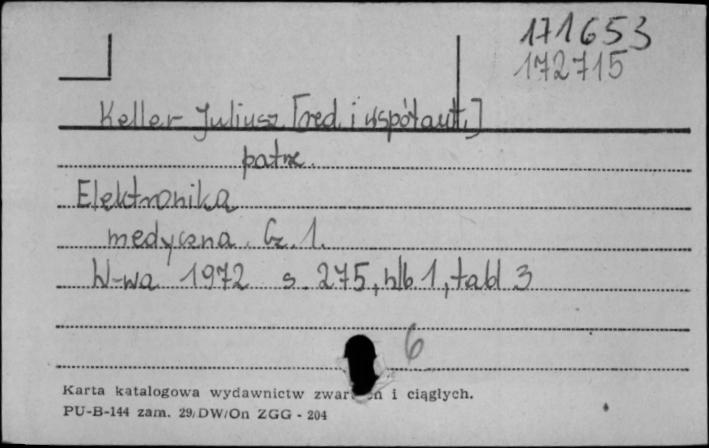 171653
172715
Keller Juliusz [red. i współaut.]
patrz.
Elektronika
medyczna. Cz. 1.
W-wa 1972 s. 275, nlb 1, tabl 3
6
Karta katalogowa wydawnictw zwar en i ciągłych.
PU-B-144 zam. 29/DW/On ZGG - 204